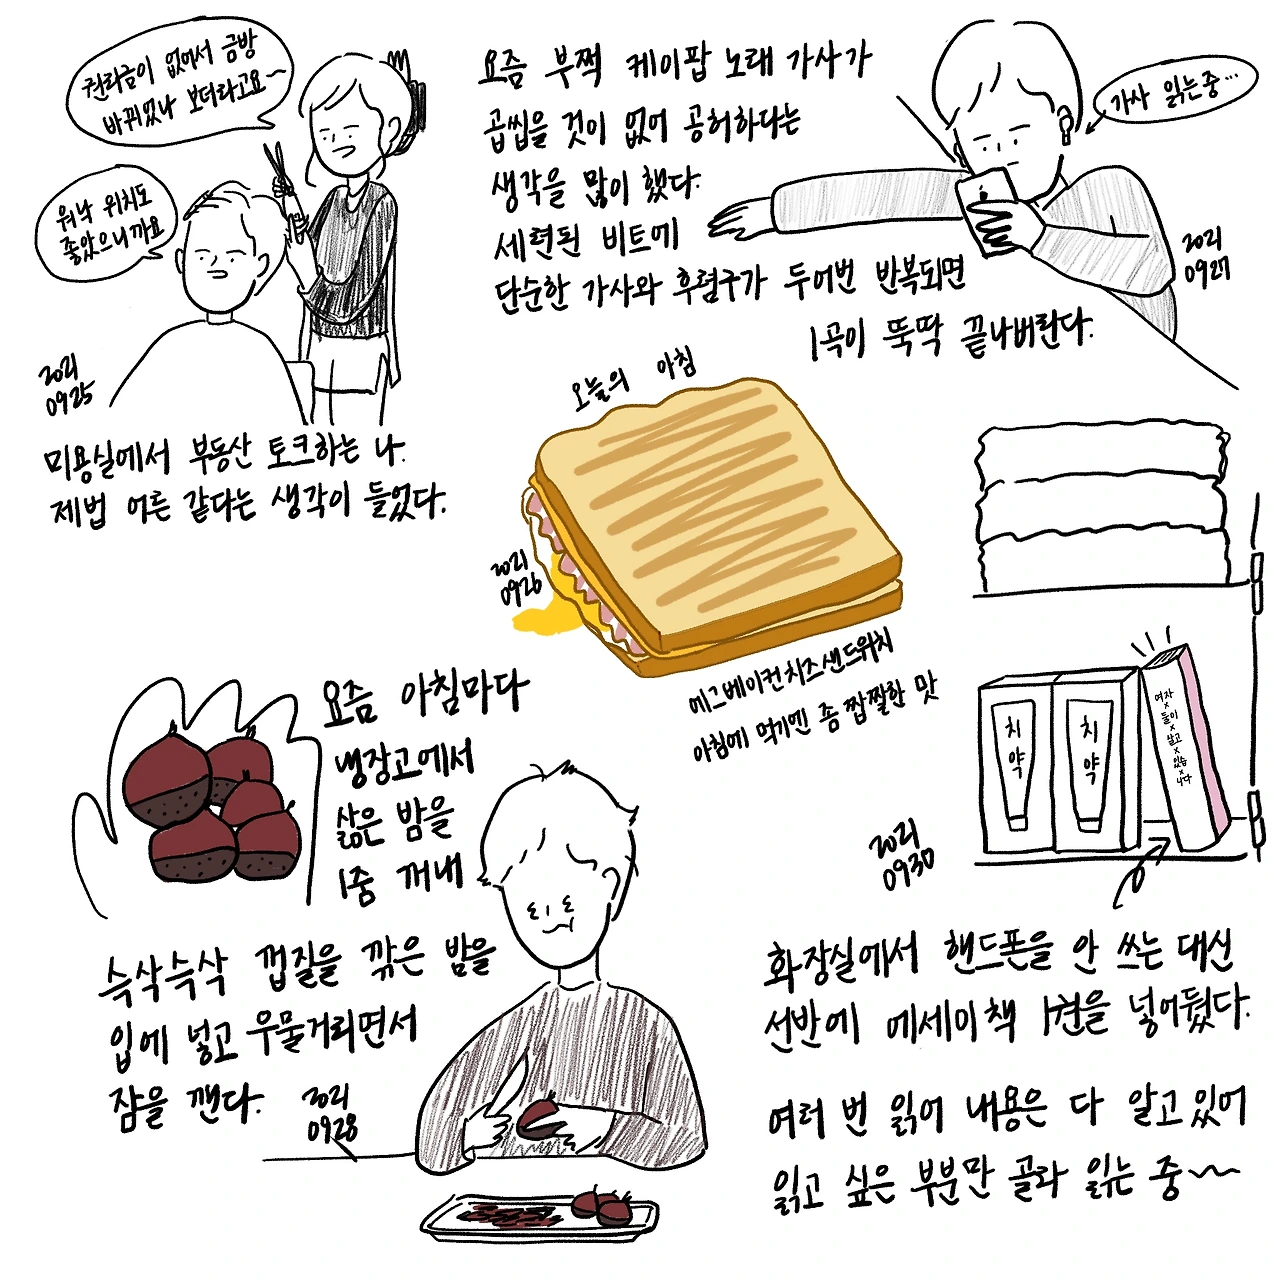 권리금이 없어서 금방
바뀌었나 보더라고요~
워낙 위치도
좋았으니까요
2021
0925
미용실에서 부동산 토크하는 나.
제법 어른 같다는 생각이 들었다.
요즘 부쩍 케이팝 노래 가사가
곱씹을 것이 없어 공허하다는
생각을 많이 했다.
세련된 비트에
단순한 가사와 후렴구가 두어번 반복되면
1곡이 뚝딱 끝나버린다.
가사 읽는중...
2021
0927
오늘의 아침
2021
0926
에그베이컨치즈샌드위치
아침에 먹기엔 좀 짭짤한 맛
요즘 아침마다
냉장고에서
삶은 밤을
1줌 꺼내
슥삭슥삭 껍질을 깎은 밤을
입에 넣고 우물거리면서
잠을 깬다.
2021
0928
치약
치약
여자
×
둘이
×
살고
×
있습
×
니다
2021
0930
화장실에서 핸드폰을 안 쓰는 대신
선반에 에세이책 1권을 넣어뒀다.
여러 번 읽어 내용은 다 알고있어
읽고 싶은 부분만 골라 읽는 중~